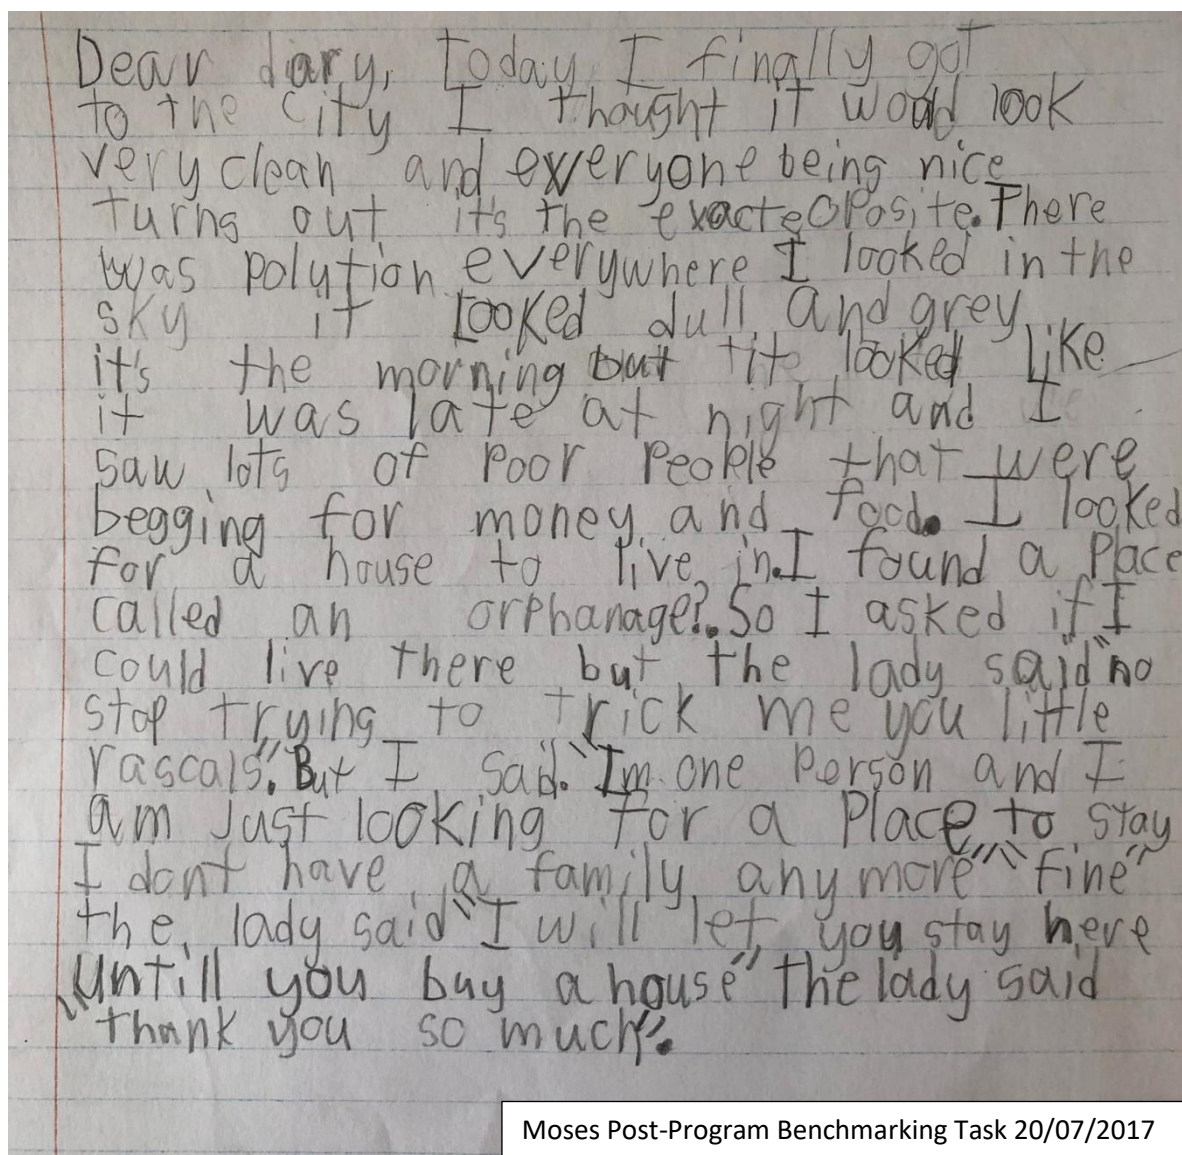 Dear diary, Today I finally got
to the city I thought it would look
very clean and everyone being nice
turns out it's the exacte oposite. There
was polution everywhere I looked in the
sky it looked dull and grey
it's the morning but it looked like
it was late at night and I
saw lots of poor people that were
begging for money and food. I looked
for a house to live in. I found a place
called an orphanage?. So I asked if I
could live there but the lady said "no
stop trying to trick me you little
rascals". But I said. "Im one person and I
am just looking for a place to stay
I dont have a family anymore" "fine"
the lady said "I will let you stay here
untill you buy a house" the lady said
"thank you so much".
Moses Post-Program Benchmarking Task 20/07/2017